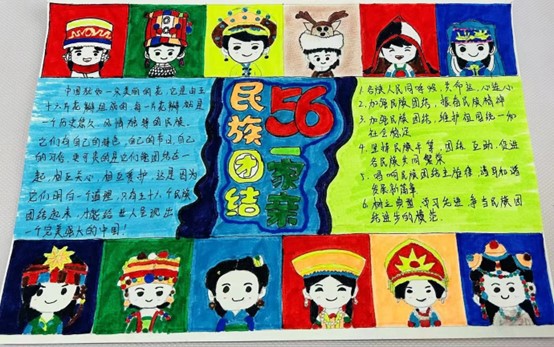 中国犹如一朵美丽的花,它是由五
十六片花瓣组成的,每一片花瓣就是
一个历史悠久,风情独特的民族。
它们有自己的特色,自己的节日,自己
的习俗,更可贵的是它们能团结在一
起,相互关心,相互爱护,这是因为
它们明白一个道理,只有五十六个民族
团结起来,才能给世人呈现出
一个完美强大的中国!
民族团结
56
一家亲
1.各族人民同呼吸,共命运,心连心
2.加强民族团结,振奋民族精神
3.加强民族团结,维护祖国统一和
社会稳定
4.坚持民族平等,团结互助,促进
各民族共同繁荣
5.唱响民族团结主旋律,谱写和谐
发展新篇章
6.树立典型,学习先进,争当民族团
结进步的模范。